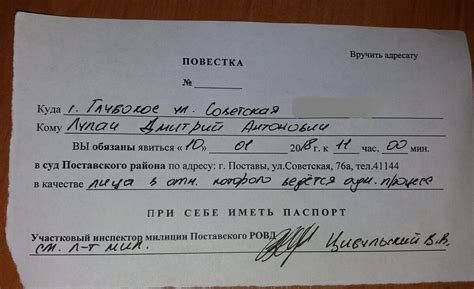 Вручить адресату
ПОВЕСТКА
№
Куда г. Глубокое ул. Советская
Кому Лупач Дмитрий Антонович
ВЫ обязаны явиться «10» 01 2018 г. к 11 час. 00 мин.
в суд Поставского района по адресу: г. Поставы, ул.Советская, 76а, тел.41144
в качестве лица в отн. которого ведётся адм. процесс
ПРИ СЕБЕ ИМЕТЬ ПАСПОРТ
Участковый инспектор милиции Поставского РОВД
ст. л-т мил. Цивульский В.В.